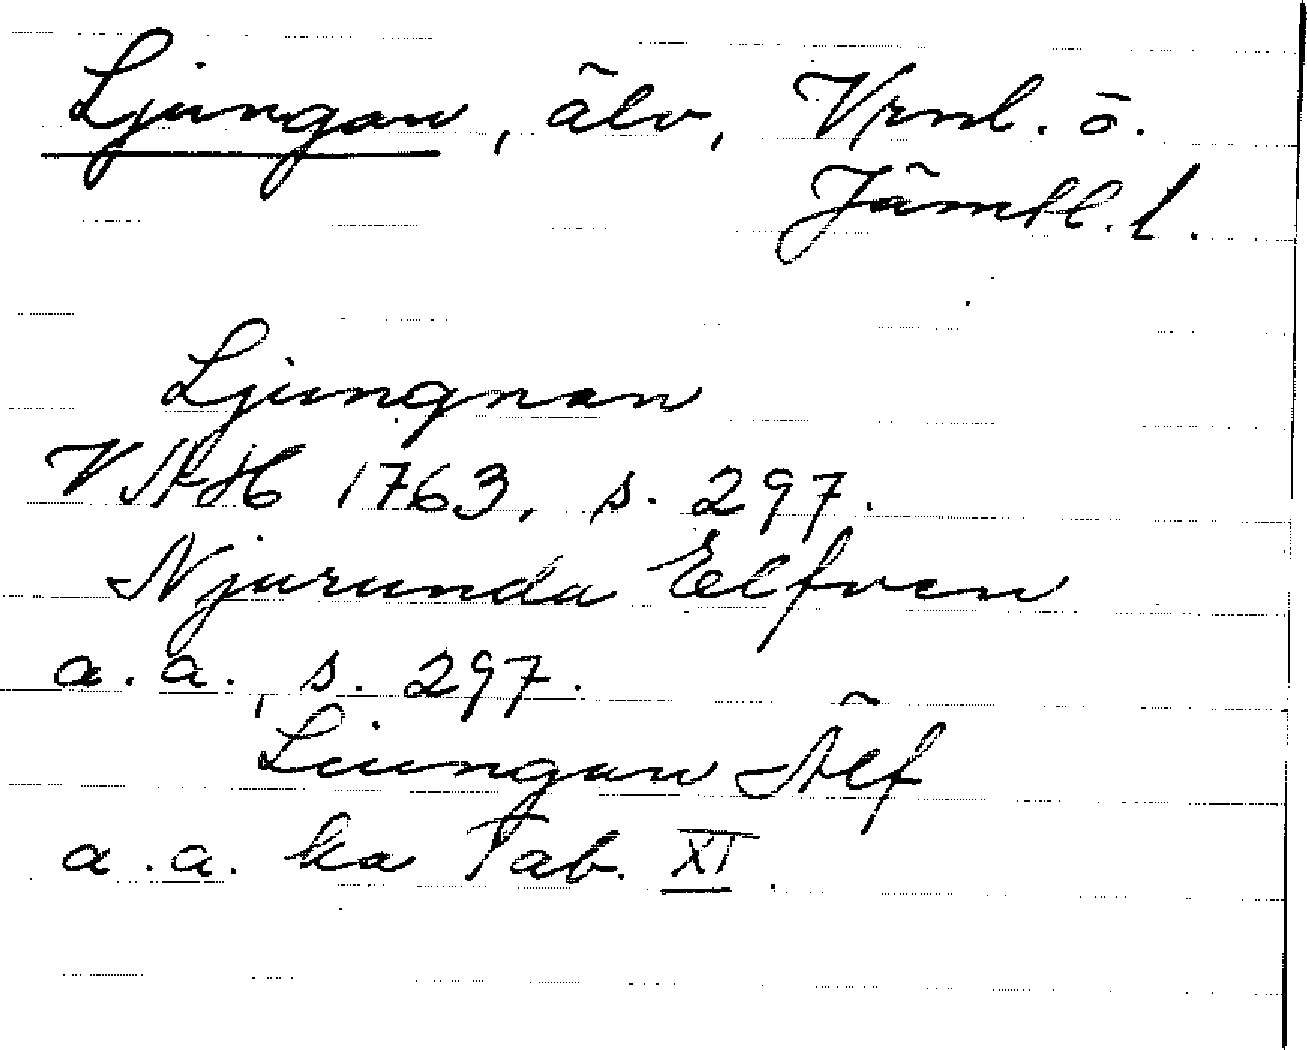 Ljungan, älv, Vrnl. o.
Jämtl. l.
Ljungnan
VAH 1763, s. 297.
Njurunda Elfven
a.a., s. 297.
Liungan Älf
a.a. ka Tab. XI.